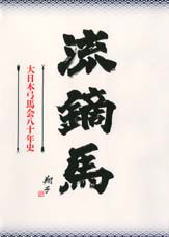 流鏑馬
大日本弓馬会八十年史
翔子